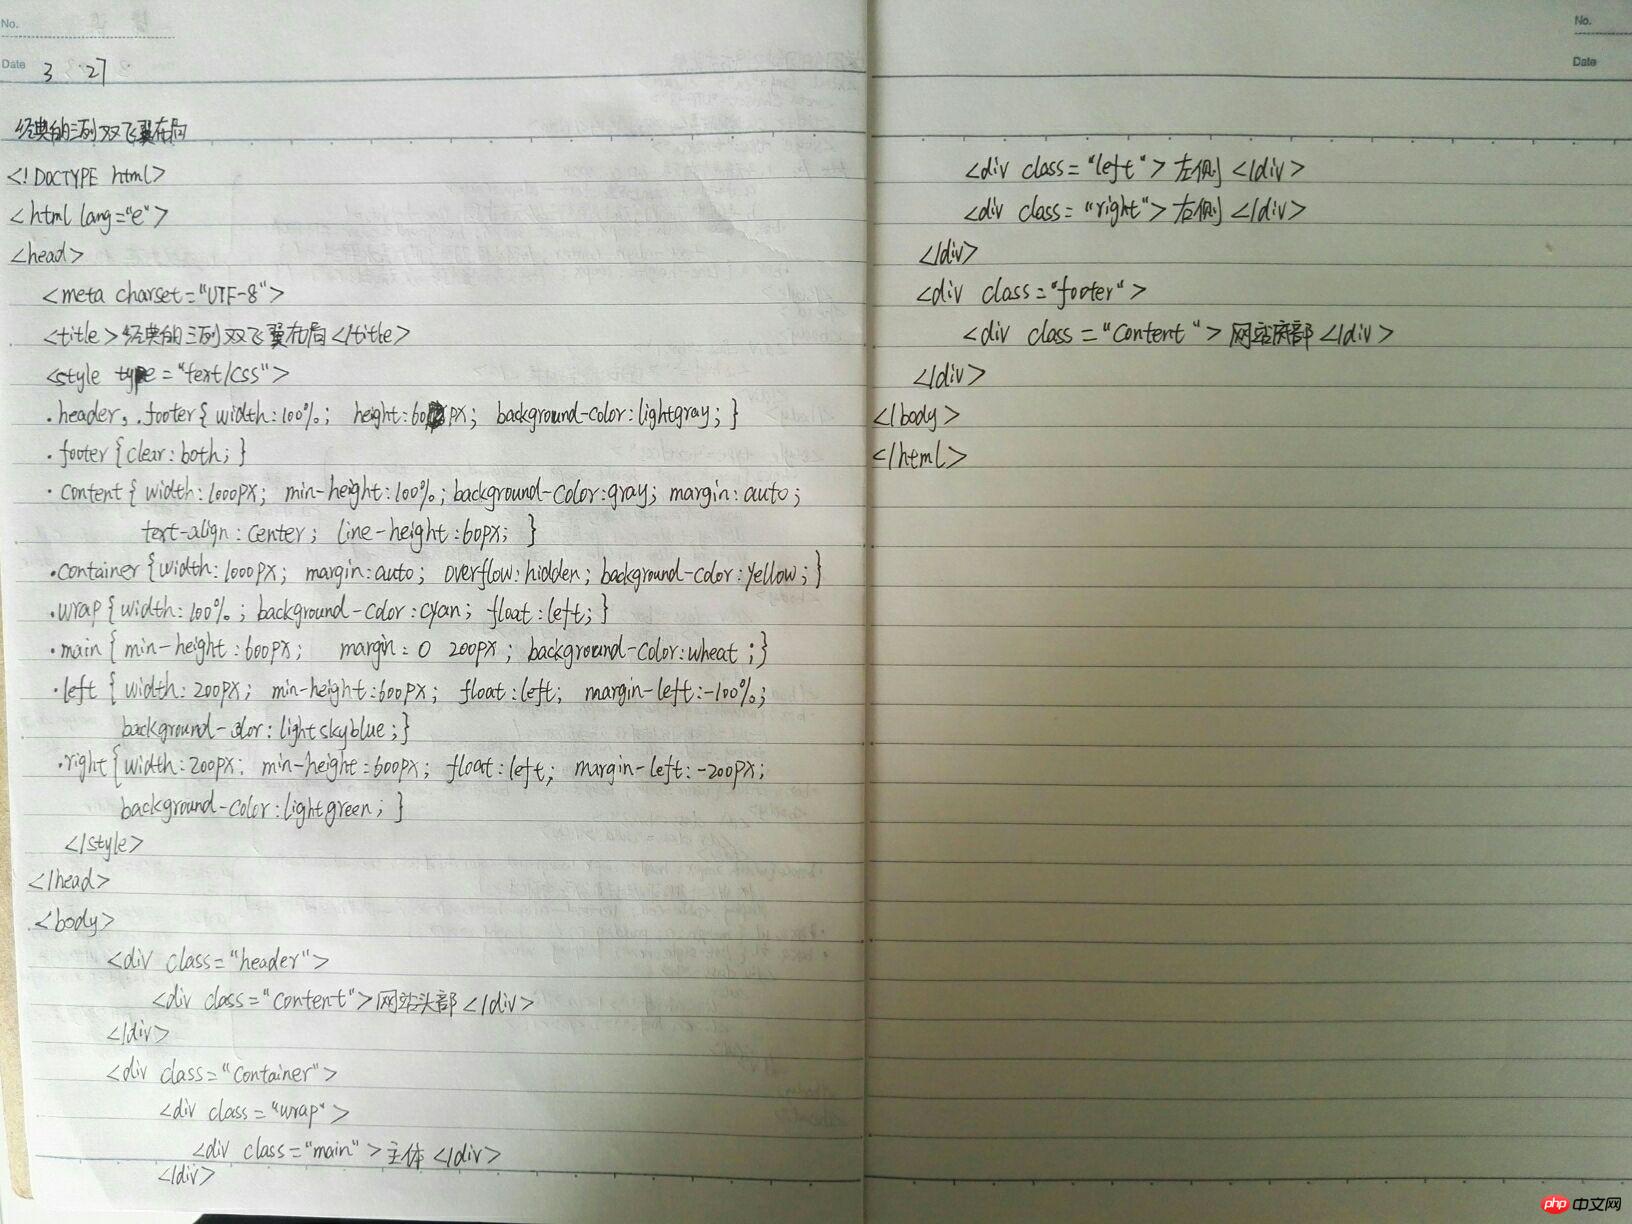 No.
Date 3 27
经典的三列双飞翼布局
<!DOCTYPE html>
<html lang="e">
<head>
<meta charset="UTF-8">
<title>经典的三列双飞翼布局</title>
<style type="text/css">
.header, .footer{ width:100%; height:60px; background-color:lightgray; }
.footer{clear:both;}
.content{ width:1000px; min-height:100%; background-color:gray; margin:auto;
text-align:center; line-height:60px; }
.container{width:1000px; margin:auto; overflow:hidden; background-color:yellow;}
.wrap{width:100%; background-color:cyan; float:left;}
.main{ min-height:600px; margin:0 200px; background-color:wheat;}
.left{ width:200px; min-height:600px; float:left; margin-left:-100%;
background-color:lightskyblue;}
.right{width:200px: min-height:600px; float:left; margin-left:-200px;
background-color:lightgreen; }
</style>
</head>
<body>
<div class="header">
<div class="content">网站头部</div>
</div>
<div class="container">
<div class="wrap">
<div class="main">主体</div>
</div>
No.
Date
<div class="left">左侧</div>
<div class="right">右侧</div>
</div>
<div class="footer">
<div class="content">网站底部</div>
</div>
</body>
</html>
php 中文网